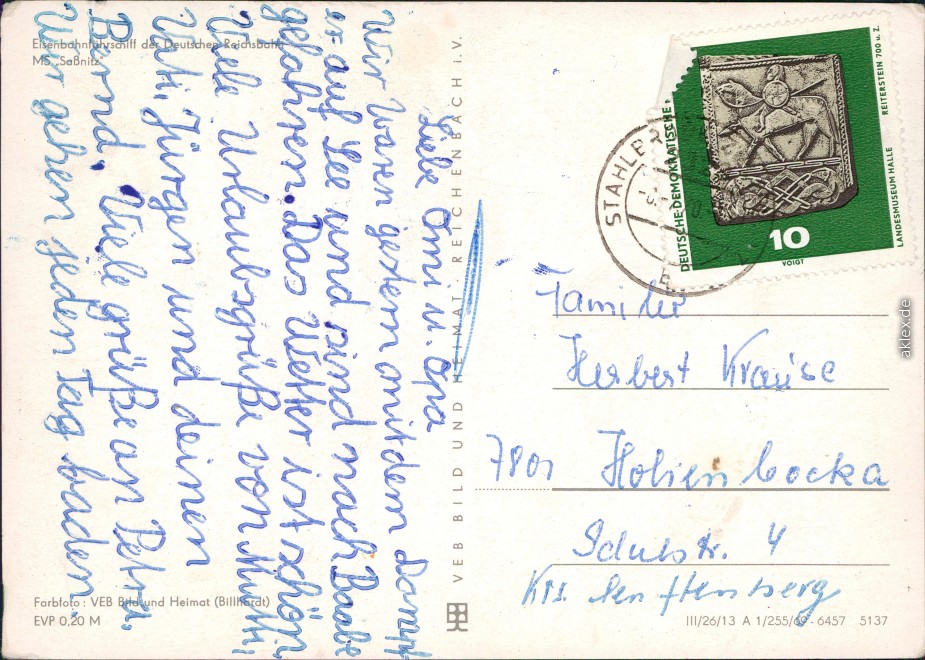 Eisenbahnfährschiff der Deutschen Reichsbahn
MS "Saßnitz"
Liebe Omi u. Opa
Wir waren gestern mit dem Dampf
er auf See und sind nach Baabe
gefahren. Das Wetter ist schön.
Viele Urlaubsgrüße von Mutti,
Vati, Jürgen und deinen
Bernd. Viele grüße an Petra.
Wir gehen jeden Tag baden.
Farbfoto: VEB Bild und Heimat (Billhardt)
EVP 0,20 M
VEB BILD UND HEIMAT REICHENBACH i. V.
STAHLB
DEUTSCHE DEMOKRATISCHE
10
VOIGT
LANDESMUSEUM HALLE
REITERSTEIN 700 u. Z.
Familie
Herbert Krause
7801 Hohenbocka
Schulstr. 4
Krs Senftenberg
III/26/13 A 1/255/69 - 6457 5137
aklex.de